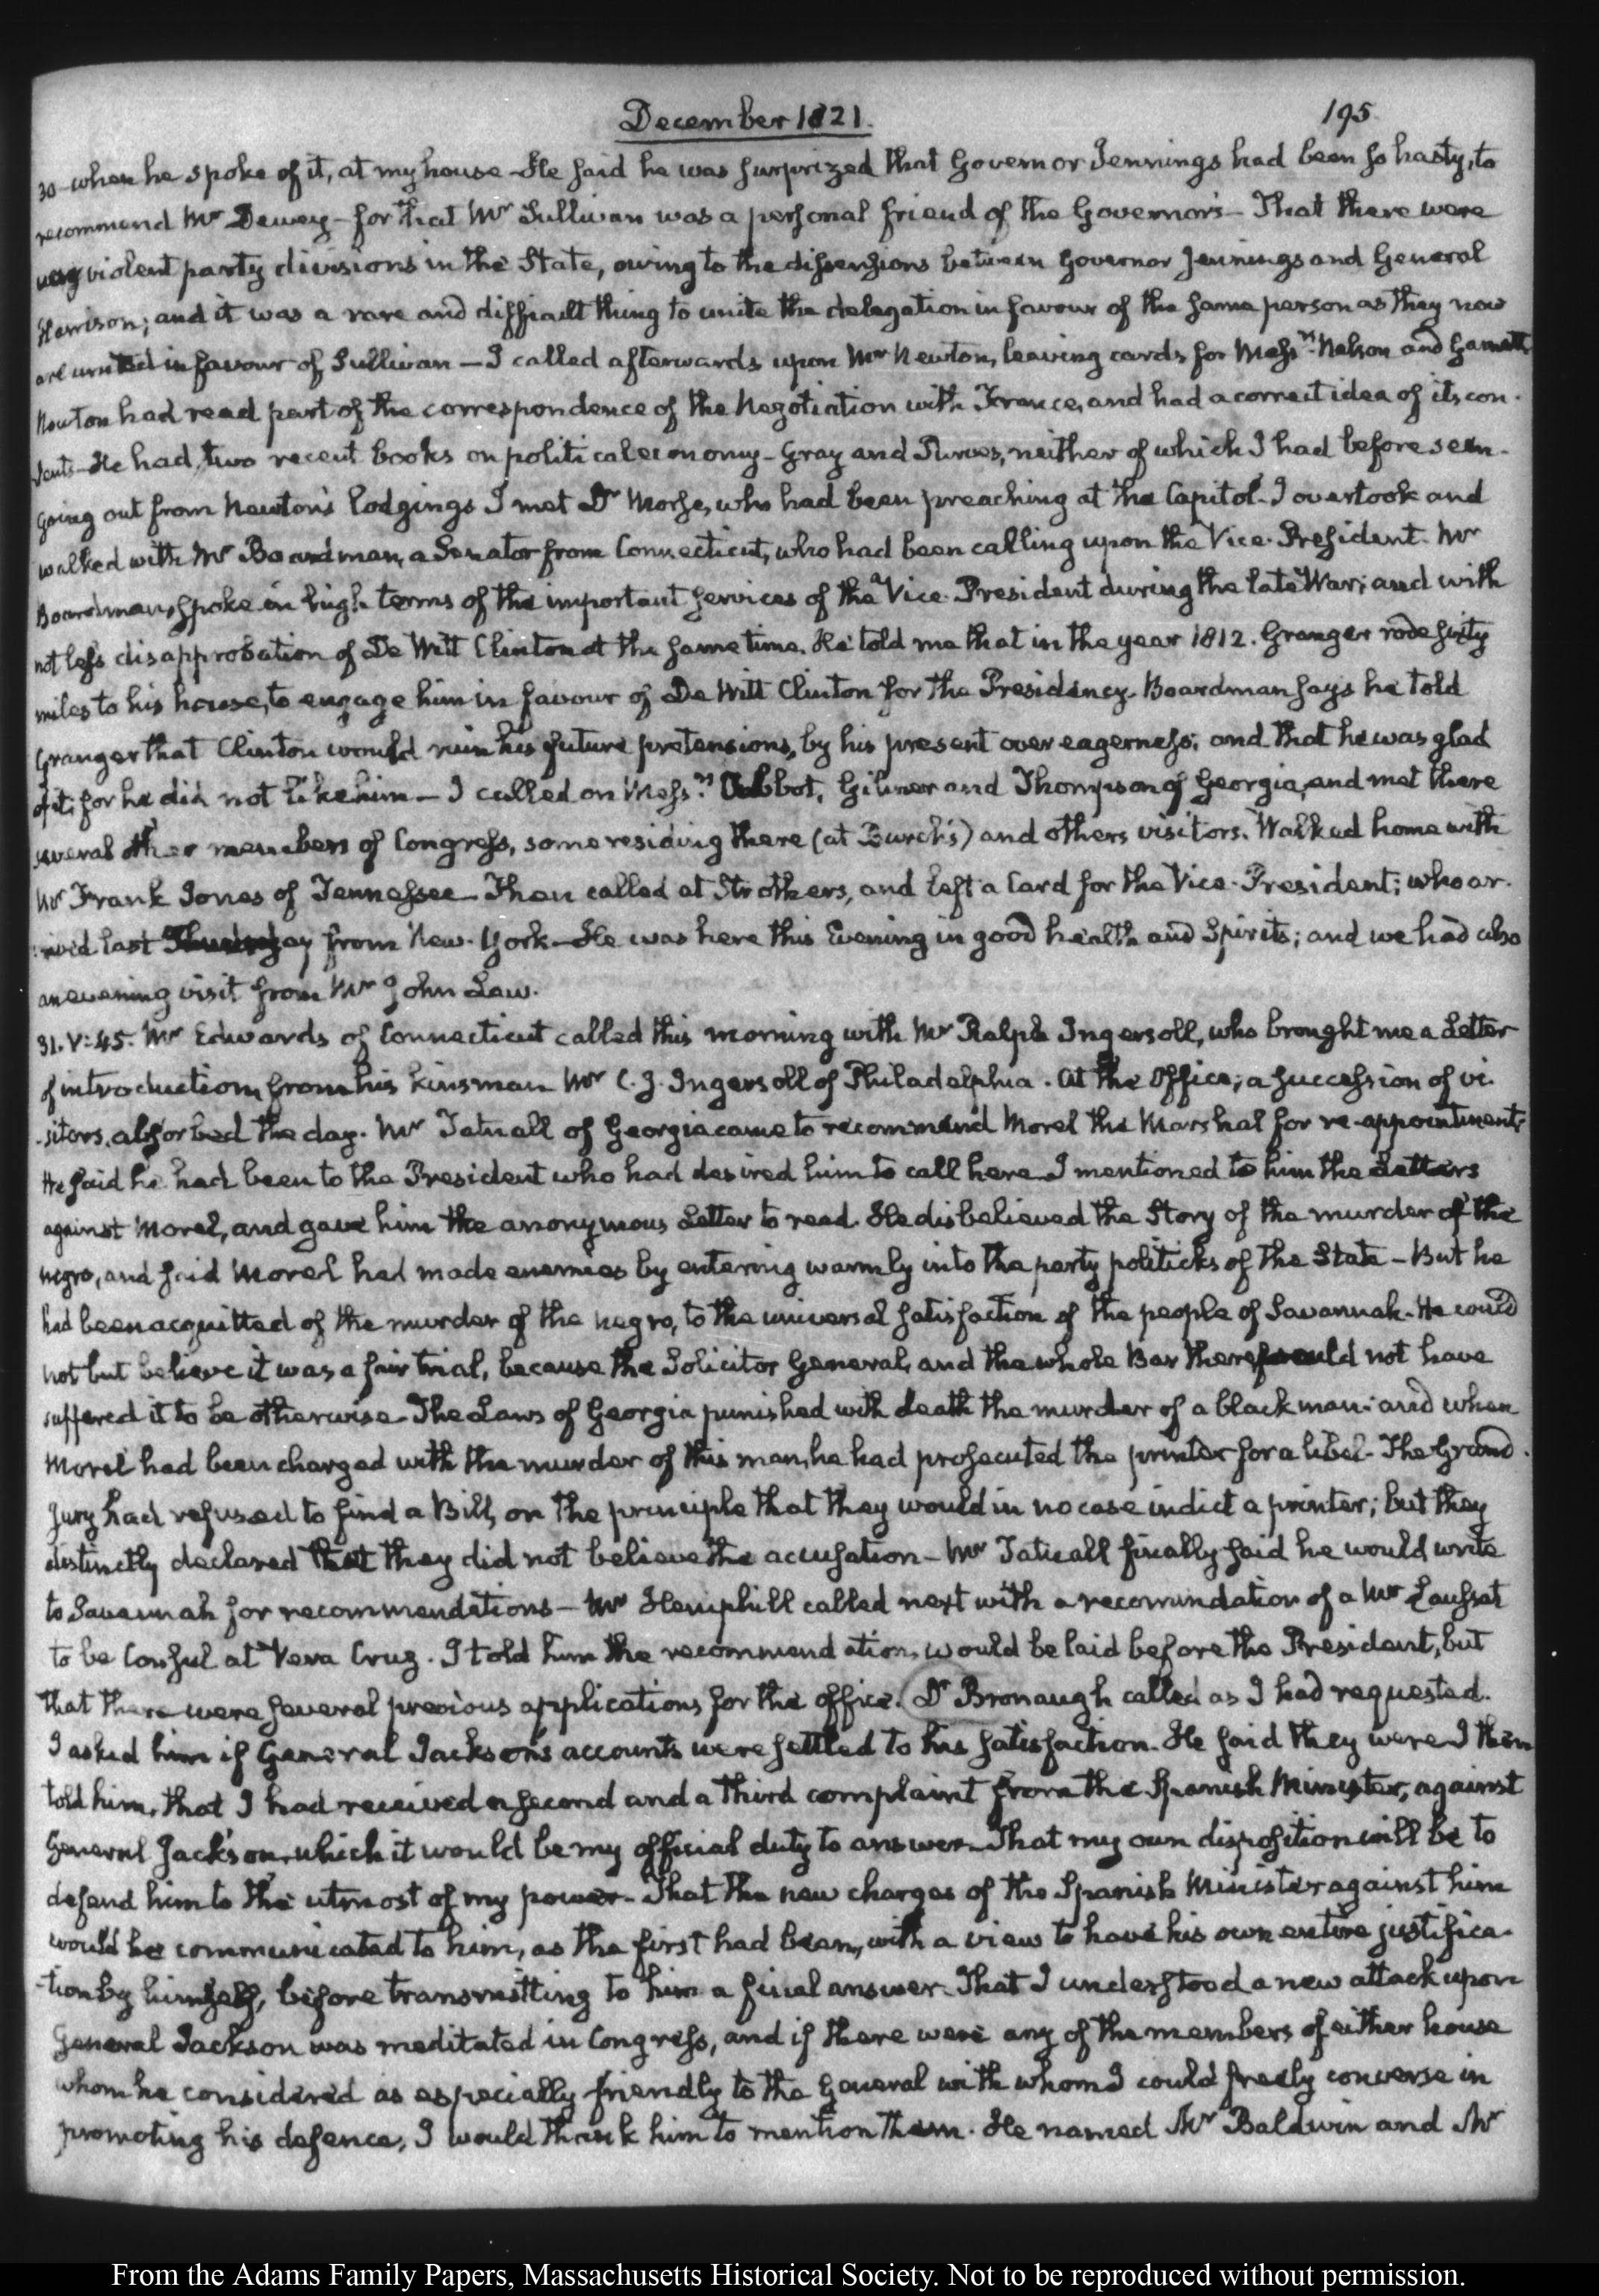 December 1821.
195
30 when he spoke of it, at my house – He said he was surprized that Governor Jennings had been so hasty, to
recommend Mr Dewey – for that Mr Sullivan was a personal friend of the Governor's – That there were
very violent party divisions in the State, owing to the dissensions between Governor Jennings and General
Harrison; and it was a rare and difficult thing to unite the delegation in favour of the same person as they now
are united in favour of Sullivan – I called afterwards upon Mr Newton, leaving cards for Messrs. Nelson and Garnett
Newton had read part of the correspondence of the Negotiation with France, and had a correct idea of its con-
tents – He had two recent books on political economy – Gray and Purves, neither of which I had before seen.
Going out from Newton's lodgings I met Dr Morse, who had been preaching at the Capitol – I overtook and
walked with Mr Boardman, a Senator from Connecticut, who had been calling upon the Vice-President. Mr
Boardman spoke in high terms of the important services of the Vice-President during the late War; and with
not less disapprobation of De Witt Clinton at the same time. He told me that in the year 1812. Granger rode sixty
miles to his house, to engage him in favour of De Witt Clinton for the Presidency. Boardman says he told
Granger that Clinton would ruin his future pretensions, by his present over eagerness; and that he was glad
of it; for he did not like him – I called on Messrs. Abbot, Gilmer and Thompson of Georgia, and met there
several other members of Congress, some residing there (at Burch's) and others visitors. Walked home with
Mr Frank Jones of Tennessee – Then called at Strother's, and left a Card for the Vice-President; who ar-
rived last from New-York – He was here this Evening in good health and Spirits; and we had also
an evening visit from Mr John Law.
31. V:45. Mr Edwards of Connecticut called this morning with Mr Ralph Ingersoll, who brought me a Letter
of introduction from his kinsman Mr C. J. Ingersoll of Philadelphia. At the Office; a succession of vi-
-sitors, absorbed the day. Mr Tatnall of Georgia came to recommend Morel the Marshal for re-appointment.
He said he had been to the President who had desired him to call here – I mentioned to him the Letters
against Morel, and gave him the anonymous Letter to read – He disbelieved the Story of the murder of the
negro, and said Morel had made enemies by entering warmly into the party politicks of the State – But he
had been acquitted of the murder of the negro, to the universal satisfaction of the people of Savannah – He could
not but believe it was a fair trial, because the Solicitor General, and the whole Bar there would not have
suffered it to be otherwise – The Laws of Georgia punished with death the murder of a black man: and when
Morel had been charged with the murder of this man, he had prosecuted the printer for a libel – The Grand
Jury had refused to find a Bill, on the principle that they would in no case indict a printer; but they
distinctly declared that they did not believe the accusation – Mr Tatnall finally said he would write
to Savannah for recommendations – Mr Hemphill called next with a recommendation of a Mr Laussat
to be Consul at Vera Cruz. I told him the recommendation, would be laid before the President, but
that there were several previous applications for the office. Dr Bronaugh called as I had requested.
I asked him if General Jackson's accounts were settled to his satisfaction. He said they were – I then
told him, that I had received a second and a third complaint from the Spanish Minister, against
General Jackson, which it would be my official duty to answer – That my own disposition will be to
defend him to the utmost of my power – That the new charges of the Spanish Minister against him
would be communicated to him, as the first had been, with a view to have his own entire justifica-
-tion by himself, before transmitting to him a final answer. That I understood a new attack upon
General Jackson was meditated in Congress, and if there were any of the members of either house
whom he considered as especially friendly to the General with whom I could freely converse in
promoting his defence, I would thank him to mention them. He named Mr Baldwin and Mr
From the Adams Family Papers, Massachusetts Historical Society. Not to be reproduced without permission.